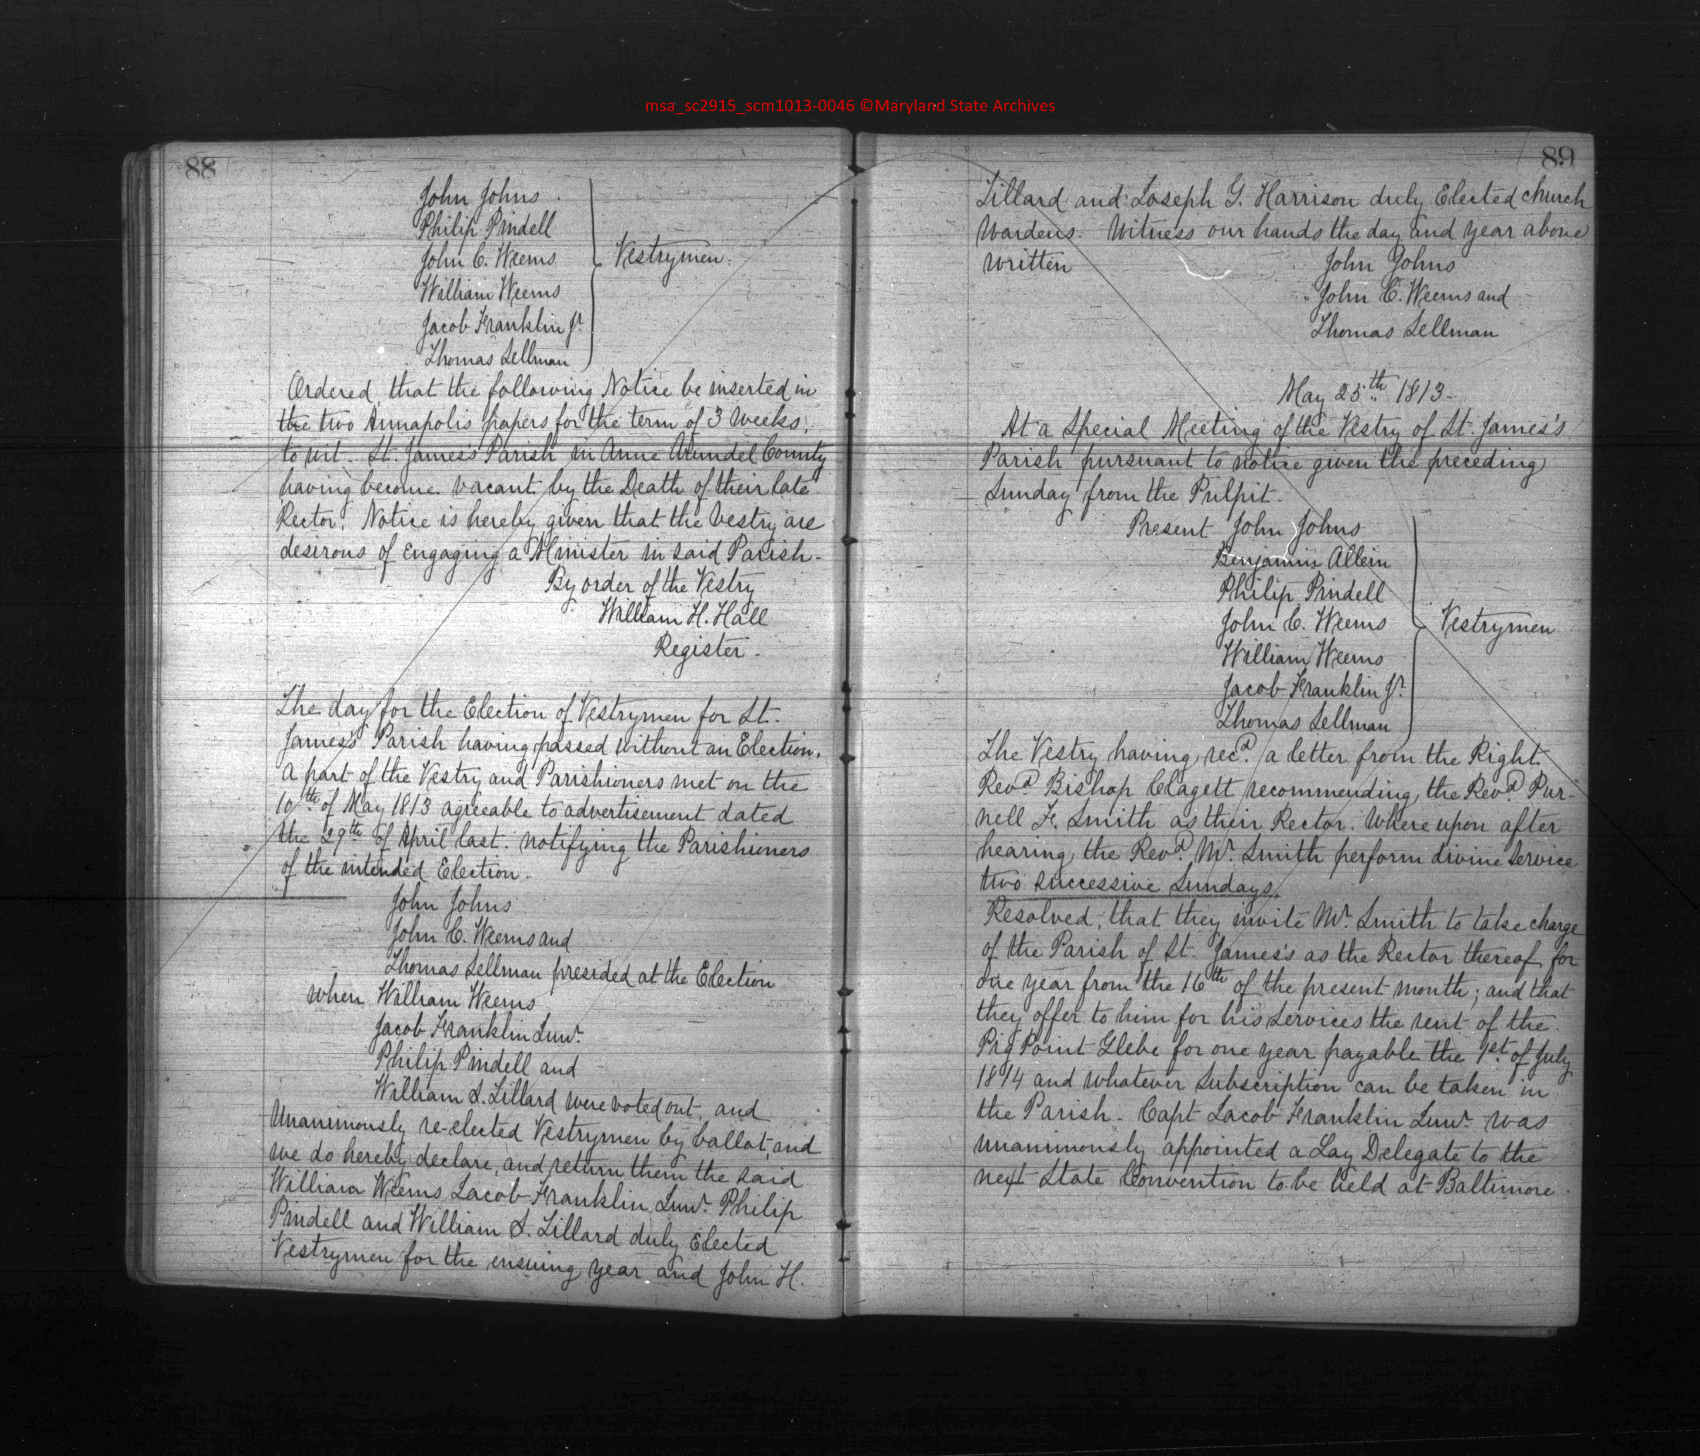 msa_sc2915_scm1013-0046 ©Maryland State Archives
88
John Johns
Philip Pindell
John C. Weems
William Weems
Jacob Franklin Jr.
Thomas Sellman
Vestrymen.
Ordered, that the following Notice be inserted in
the two Annapolis papers for the term of 3 Weeks,
to wit. St. James's Parish in Anne Arundel County
having become vacant by the Death of their late
Rector. Notice is hereby given that the Vestry are
desirous of engaging a Minister in said Parish.
By order of the Vestry
William H. Hall
Register.
The day for the Election of Vestrymen for St.
James's Parish having passed without an Election.
A part of the Vestry and Parishioners met on the
10th of May 1813 agreeable to advertisement dated
the 29th of April last. notifying the Parishioners
of the intended Election.
John Johns
John C. Weems and
Thomas Sellman presided at the Election
when William Weems
Jacob Franklin Junr.
Philip Pindell and
William S. Tillard were voted out, and
Unanimously re-elected Vestrymen by ballot, and
we do hereby declare, and return them the said
William Weems, Jacob Franklin Junr. Philip
Pindell and William S. Tillard duly Elected
Vestrymen for the ensuing year and John H.
89
Tillard and Joseph G. Harrison duly Elected church
Wardens. Witness our hands the day and year above
written
John Johns
John C. Weems and
Thomas Sellman
May 25th 1813.
At a Special Meeting of the Vestry of St. James's
Parish pursuant to notice given the preceding
Sunday from the Pulpit.
Present John Johns
Benjamin Allein
Philip Pindell
John C. Weems
William Weems
Jacob Franklin Jr.
Thomas Sellman
Vestrymen
The Vestry having recd. a letter from the Right
Revd Bishop Clagett recommending the Revd. Pur-
nell F. Smith as their Rector. Where upon after
hearing the Revd. Mr. Smith perform divine Service
two successive Sundays.
Resolved, that they invite Mr. Smith to take charge
of the Parish of St. James's as the Rector thereof for
one year from the 16th of the present month; and that
they offer to him for his services the rent of the
Pig Point Glebe for one year payable the 1st of July
1814 and whatever Subscription can be taken in
the Parish. Capt Jacob Franklin Junr. was
unanimously appointed a Lay Delegate to the
next State Convention to be held at Baltimore.